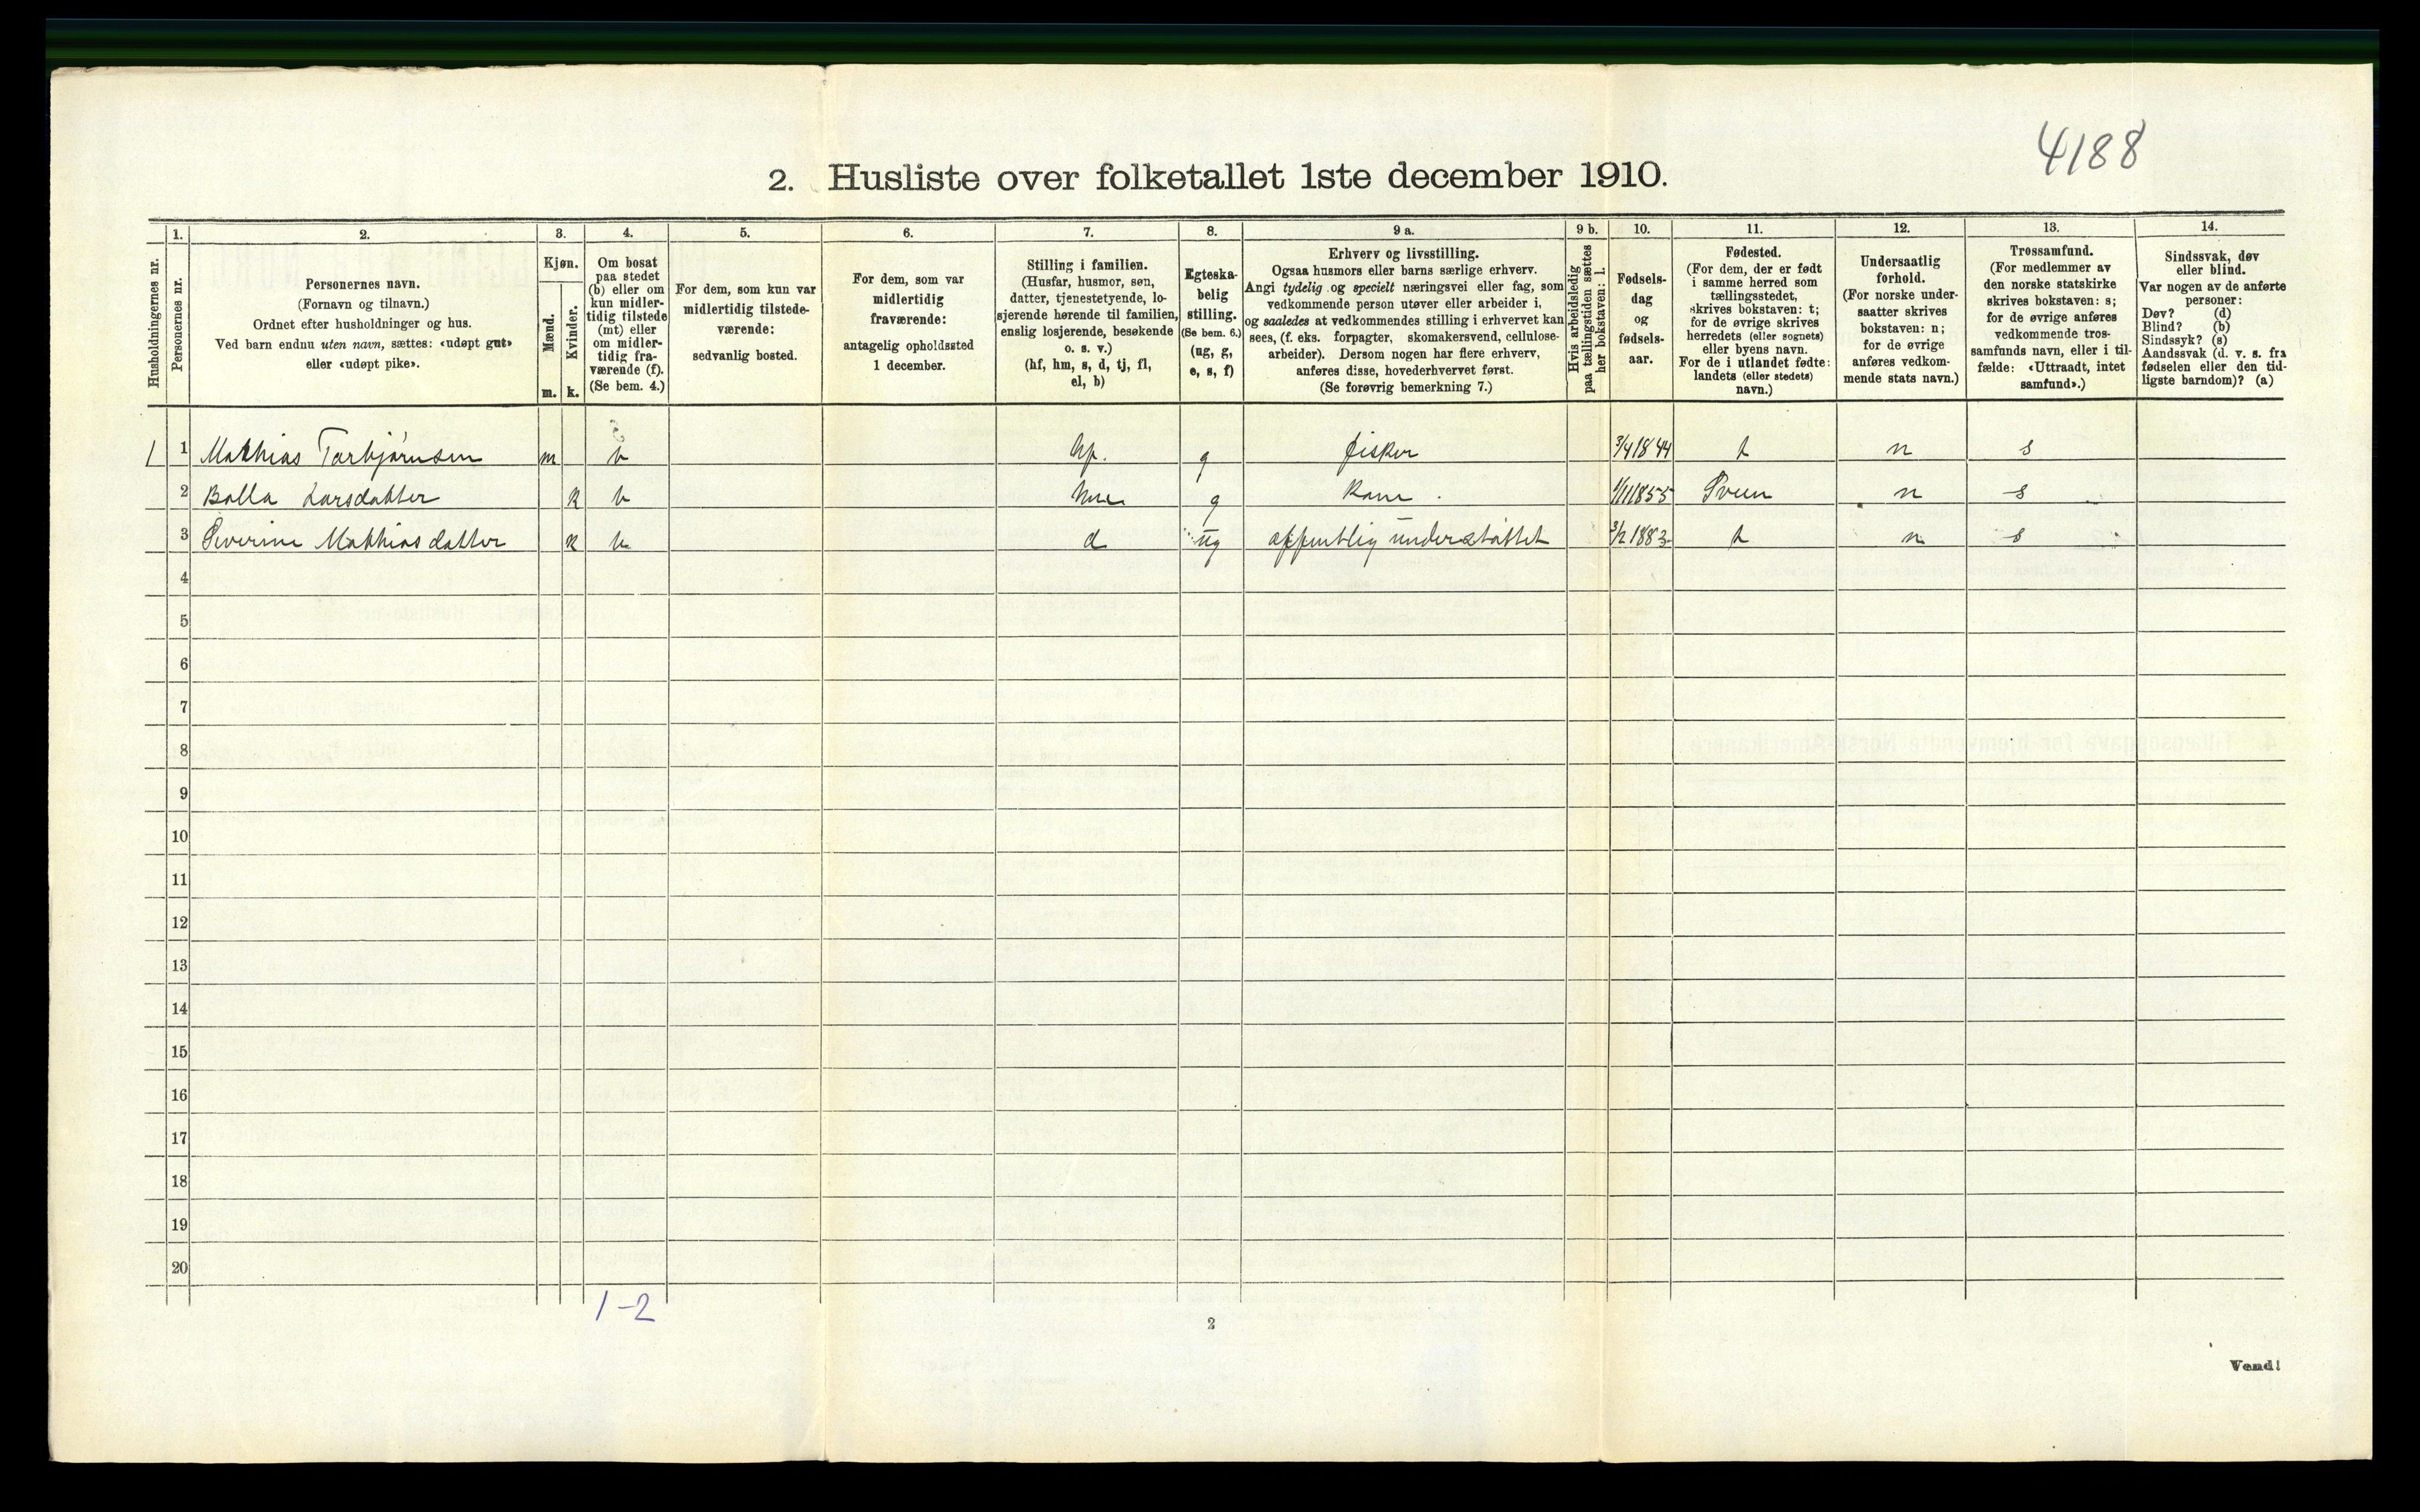 4188
2. Husliste over folketallet 1ste december 1910.
Husholdningernes nr.
1.
Personernes nr.
2.
Personernes navn.
(Fornavn og tilnavn.)
Ordnet efter husholdninger og hus.
Ved barn endnu uten navn, sættes: «udøpt gut»
eller «udøpt pike».
3.
Kjøn.
Mænd.
m.
Kvinder.
k.
4.
Om bosat
paa stedet
(b) eller om
kun midler-
tidig tilstede
(mt) eller
om midler-
tidig fra-
værende (f).
(Se bem. 4.)
5.
For dem, som kun var
midlertidig tilstede-
værende:
sedvanlig bosted.
6.
For dem, som var
midlertidig
fraværende:
antagelig opholdssted
1 december.
7.
Stilling i familien.
(Husfar, husmor, søn,
datter, tjenestetyende, lo-
sjerende hørende til familien,
enslig losjerende, besøkende
o. s. v.)
(hf, hm, s, d, tj, fl,
el, b)
8.
Egteska-
belig
stilling.
(Se bem. 6.)
(ug, g,
e, s, f)
9 a.
Erhverv og livsstilling.
Ogsaa husmors eller barns særlige erhverv.
Angi tydelig og specielt næringsvei eller fag, som
vedkommende person utøver eller arbeider i,
og saaledes at vedkommendes stilling i erhvervet kan
sees, (f. eks. forpagter, skomakersvend, cellulose-
arbeider). Dersom nogen har flere erhverv,
anføres disse, hovederhvervet først.
(Se forøvrig bemerkning 7.)
9 b.
Hvis arbeidsledig
paa tællingstiden sættes
her bokstaven: l.
10.
Fødsels-
dag
og
fødsels-
aar.
11.
Fødested.
(For dem, der er født
i samme herred som
tællingsstedet,
skrives bokstaven: t;
for de øvrige skrives
herredets (eller sognets)
eller byens navn.
For de i utlandet fødte:
landets (eller stedets)
navn.)
12.
Undersaatlig
forhold.
(For norske under-
saatter skrives
bokstaven: n;
for de øvrige
anføres vedkom-
mende stats navn.)
13.
Trossamfund.
(For medlemmer av
den norske statskirke
skrives bokstaven: s;
for de øvrige anføres
vedkommende tros-
samfunds navn, eller i til-
fælde: «Uttraadt, intet
samfund».)
14.
Sindssvak, døv
eller blind.
Var nogen av de anførte
personer:
Døv? (d)
Blind? (b)
Sindssyk? (s)
Aandssvak (d. v. s. fra
fødselen eller den tid-
ligste barndom)? (a)
1 1 Mathias Torbjørnsen m b hf. g fisker 3/4 1844 t n s
2 Larsdatter k b g Kone 1/11 1855 n s
3 Severine Mathiasdatter k b d ug offentlig understøttet 3/2 1883 t n s
4
5
6
7
8
9
10
11
12
13
14
15
16
17
18
19
20
1-2
2
Vend!